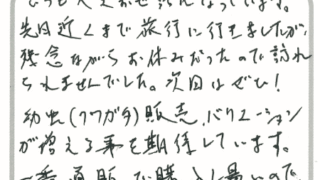 いつも大変お世話になっています。
先日近くまで旅行に行きましたが、
残念ながらお休みだったので訪れ
られませんでした。次回はぜひ!
幼虫(クワガタ)販売、バリエーション
が増える事を期待しています。
一番通販で購入し易いので、